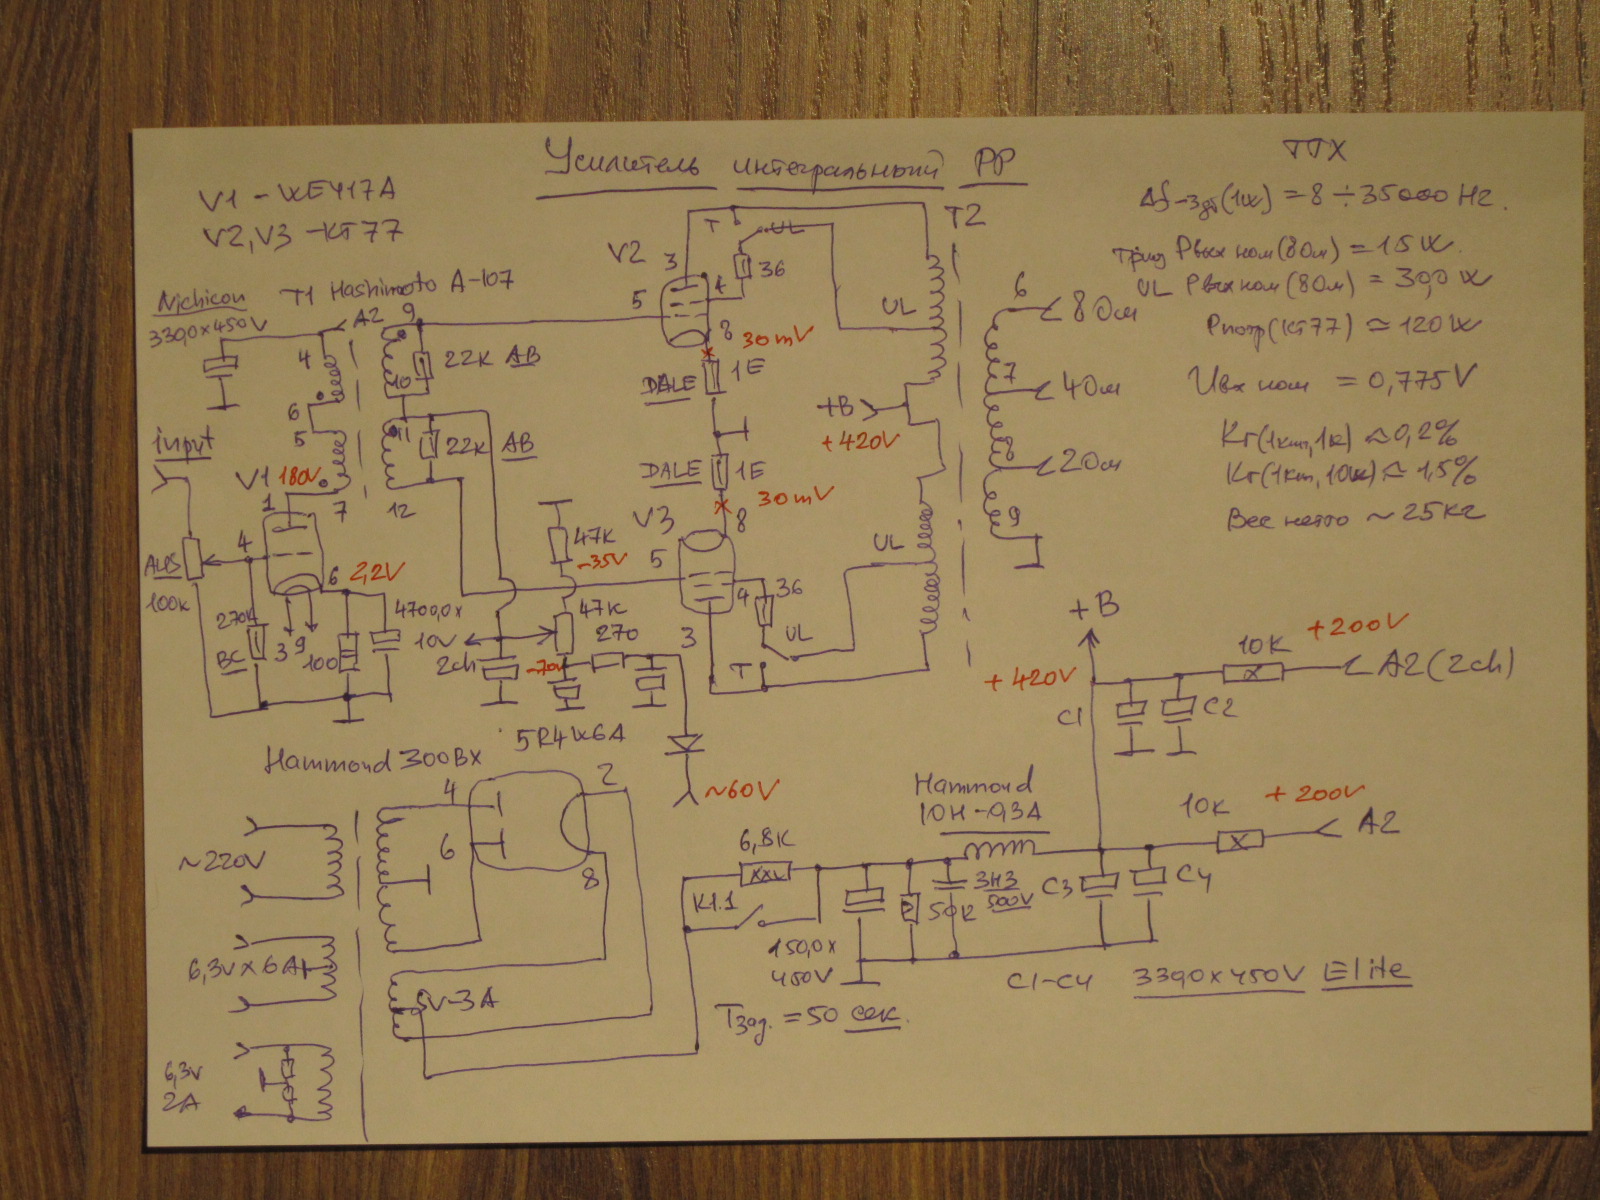 Усилитель интегральный PP
V1 - WE417A
V2, V3 - KT77
Nichicon
3390x450V
T1 Hashimoto A-107
A2
4
6
5
7
9
10
11
12
22K AB
22K AB
input
V1
180V
1
4
6
2,2V
ALPS
100K
270K
BC
3
9
100
4700,0x
10V
2ch
V2
3
5
4
8
T
UL
36
30mV
DALE
1E
DALE
1E
30mV
+B
+420V
V3
8
5
4
3
36
UL
T
47K
-35V
47K
270
-70V
~60V
T2
UL
UL
6
8 Ом
7
4 Ом
8
2 Ом
9
ТТХ
Δf-3дб(1W) = 8 ÷ 35000 Hz.
Триод Рвых ном (8 Ом) = 15 W.
UL Рвых ном (8 Ом) = 30,0 W
Рпотр (KT77) ≃ 120 W
Uвх ном = 0,775 V
≈ 0,2%
≈ 1,5%
Вес нетто ~ 25 кг
+B
+420V
10K
+200V
A2 (2ch)
C1
C2
Hammond 300BX
5R4WGA
4
6
2
8
~220V
6,3V x 6A
5V-3A
6,3V
2A
6,8K
K1.1
150,0x
450V
50K
500V
Hammond
10H - 0,3A
10K
+200V
A2
C3
C4
C1-C4 3390x450V Elite
Tзад. = 50 сек.